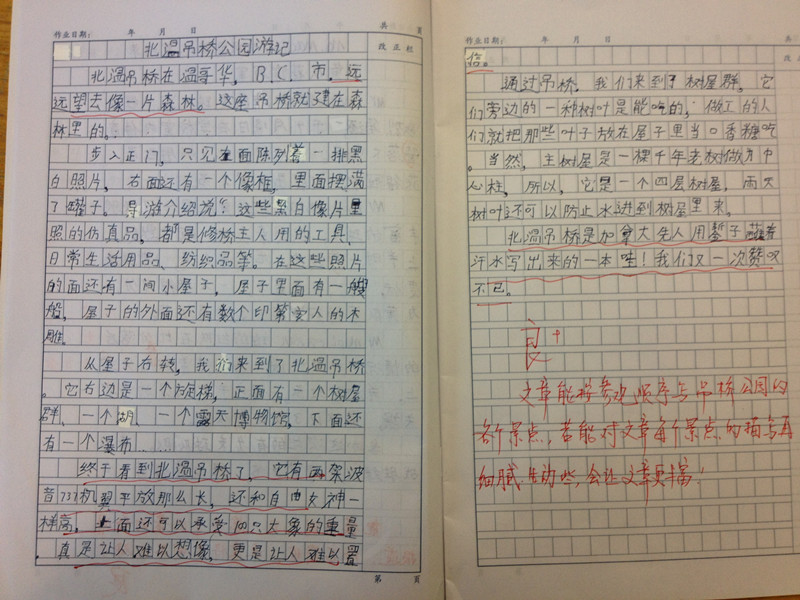 作业日期： 年 月 日 共 页
北温吊桥公园游记 改正栏
北温吊桥在温哥华，B.C.市。远
远望去像一片森林。这座吊桥就建在森
林里的。
步入正门，只见在面陈列着一排黑
白照片，右面还有一个像框，里面摆满
了罐子。导游介绍说：这些黑白像片是
照的仿真品，都是修桥主人用的工具、
日常生活用品、纺织品等。在这些照片
的面还有一间小屋子，屋子里面有一艘
船，屋子的外面还有数个印第安人的木
雕。
从屋子右转，我们来到了北温吊桥
。它右边是一个旋梯，正面有一个树屋
群、一个湖、一个露天博物馆，下面还
有一个瀑布……
终于看到北温吊桥了，它有两架波
音737机翼平放那么长，还和自由女神一
样高，上面还可以承受10只大象的重量
。真是让人难以想像。更是让人难以置
第 页
作业日期： 年 月 日 共 页
信。 改正栏
通过吊桥，我们来到了树屋群。它
们旁边的一种树叶是能吃的；做工的人
们就把那些叶子放在屋子里当口香糖吃
。当然，主树屋是一棵千年老树做为中
心柱，所以，它是一个四层树屋，雨天
树叶还可以防止水进到树屋里来。
北温吊桥是加拿大先人用錾子蘸着
汗水写出来的一本哇！我们又一次赞叹
不已。
良+
文章能按参观顺序写吊桥公园的
各个景点，若能对文章每个景点的描写再
细腻生动些，会让文章更丰富！